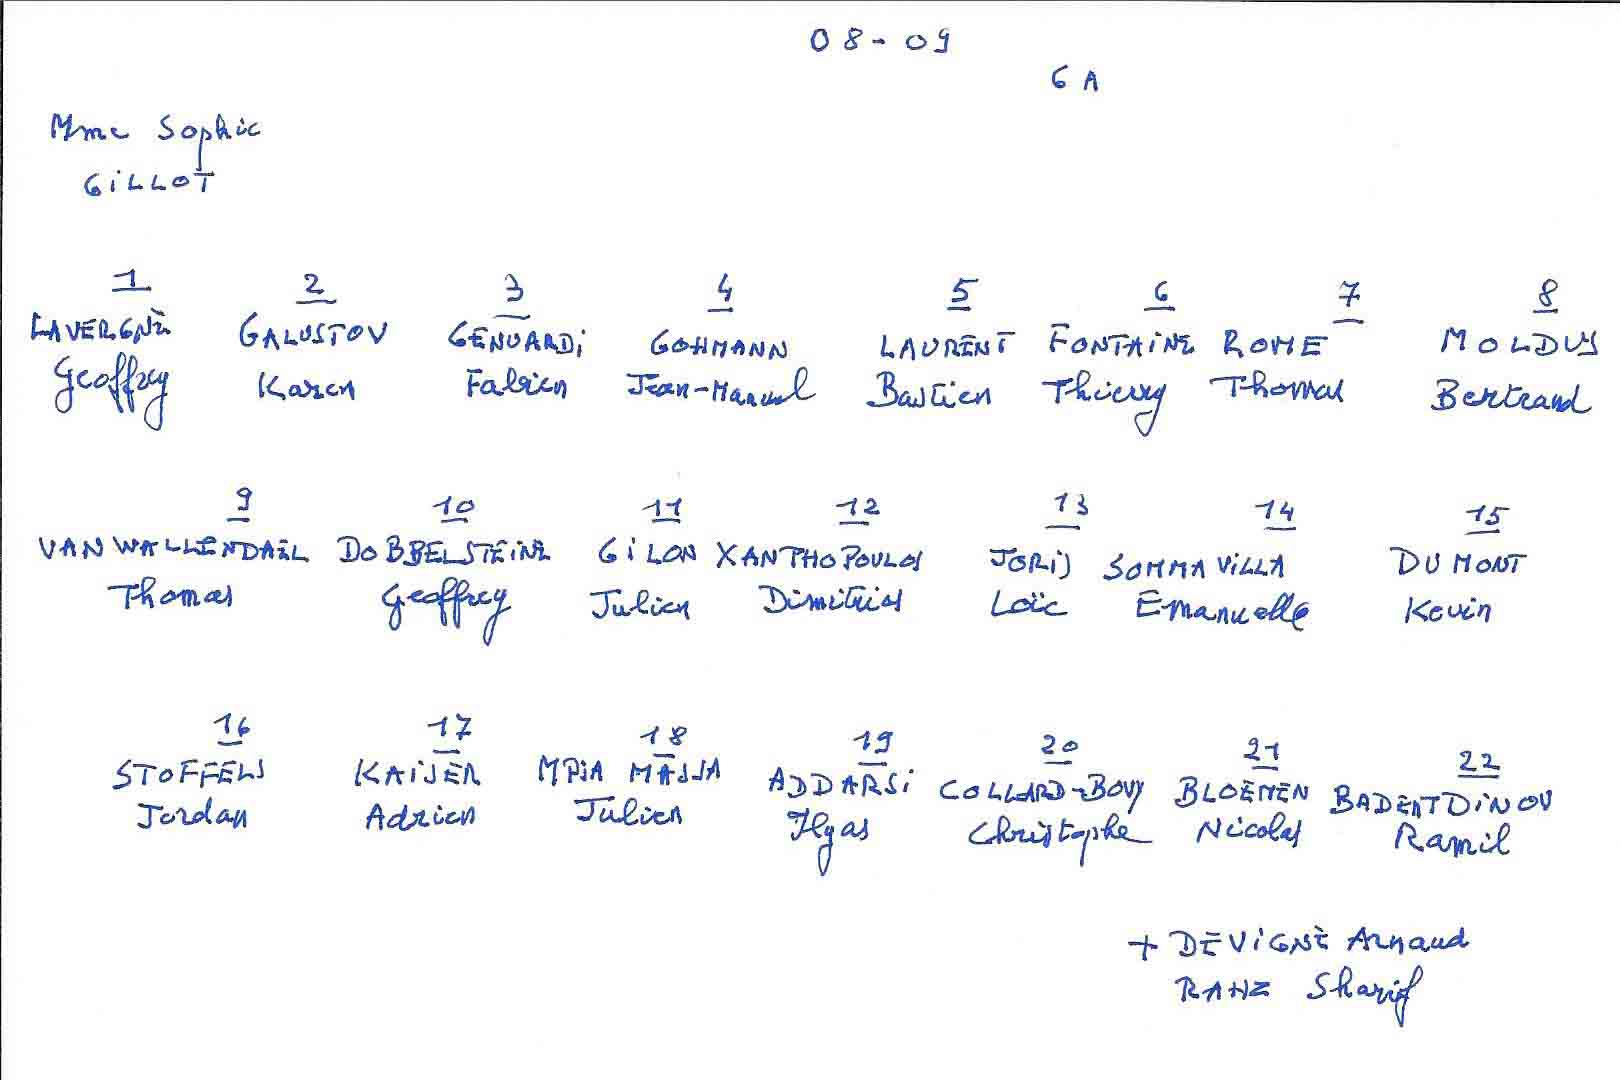 08-09
6A
Mme Sophie
GiLLOT
1 2 3 4 5 6 7 8
LAVERGNE GALUSTOV GENUARDi GOHMANN LAURENT FONTAiNE ROME MOLDUS
Geoffrey Karen Fabien Jean-Manuel Bastien Thierry Thomas Bertrand
9 10 11 12 13 14 15
VAN WALLENDAEL DOBBELSTEiNE GiLON XANTHOPOULOS JORiS SOMMAViLLA DUMONT
Thomas Geoffrey Julien Dimitrios Loïc Emanuelle Kevin
16 17 18 19 20 21 22
STOFFELS KAiSER MPiA MASSA ADDARSi COLLARD-BOVY BLOEMEN BADERTDiNOV
Jordan Adrien Julien Ilyas Christophe Nicolas Ramil
+ DEViGNE Arnaud
RANZ Sharif